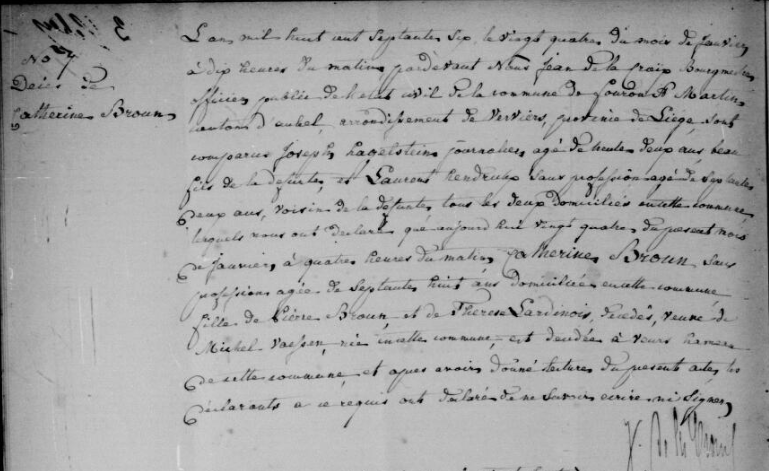 No 7
Décès de
Catherine Broun
L'an mil huit cent septante six, le vingt quatre du mois de Janvier
à dix heures du matin, pardevant Nous Jean de la Croix Bourgmestre
officier public de l'état civil de la commune de Fouron St Martin
canton d'aubel, arrondissement de Verviers, province de Liége, sont
comparus Joseph hagelstein journalier, agé de trente deux ans, beau
fils de la défunte, et Laurent hendrickx sans profession, agé de septante
deux ans, voisin de la défunte, tous les deux domiciliés en cette commune
lesquels nous ont déclaré que aujourd'hui vingt quatre du présent mois
de Janvier, à quatre heures du matin, Catherine Broun, sans
profession, agée de septante huit ans domiciliée en cette commune
fille de Piérre Broun, et de Thérèse Lardinois, décédés, veuve de
Michel Vaessen, née en cette commune, est décédée à Veurs hameau
de cette commune, et apres avoir donné lecture du present acte, les
déclarants a ce réquis ont déclaré de ne savoir écrire ni signer,